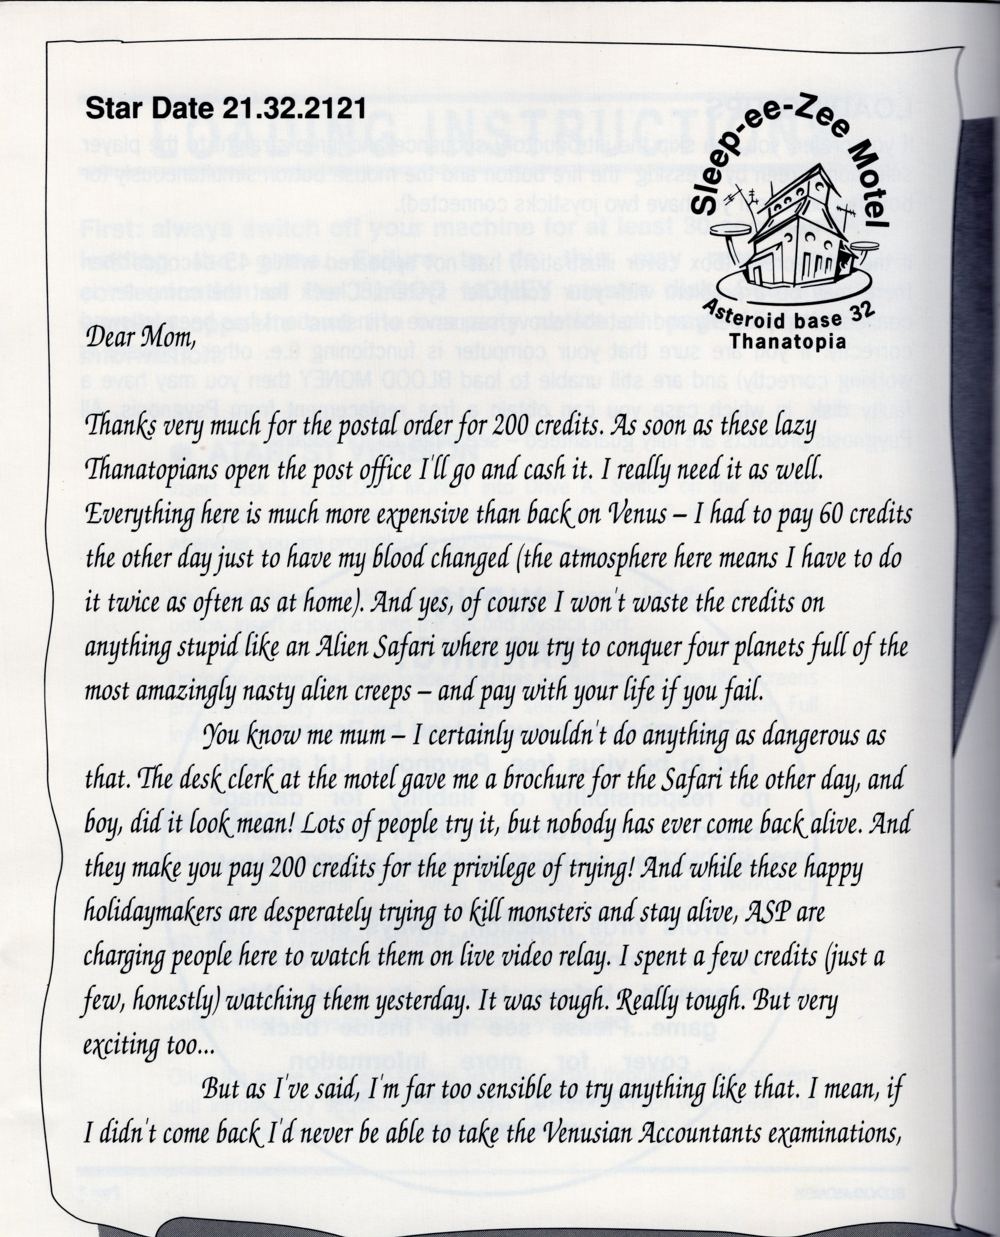 Star Date 21.32.2121
Sleep-ee-Zee Motel
Asteroid base 32
Thanatopia
Dear Mom,
Thanks very much for the postal order for 200 credits. As soon as these lazy
Thanatopians open the post office I'll go and cash it. I really need it as well.
Everything here is much more expensive than back on Venus – I had to pay 60 credits
the other day just to have my blood changed (the atmosphere here means I have to do
it twice as often as at home). And yes, of course I won't waste the credits on
anything stupid like an Alien Safari where you try to conquer four planets full of the
most amazingly nasty alien creeps – and pay with your life if you fail.
You know me mum – I certainly wouldn't do anything as dangerous as
that. The desk clerk at the motel gave me a brochure for the Safari the other day, and
boy, did it look mean! Lots of people try it, but nobody has ever come back alive. And
they make you pay 200 credits for the privilege of trying! And while these happy
holidaymakers are desperately trying to kill monsters and stay alive, ASP are
charging people here to watch them on live video relay. I spent a few credits (just a
few, honestly) watching them yesterday. It was tough. Really tough. But very
exciting too...
But as I've said, I'm far too sensible to try anything like that. I mean, if
I didn't come back I'd never be able to take the Venusian Accountants examinations,